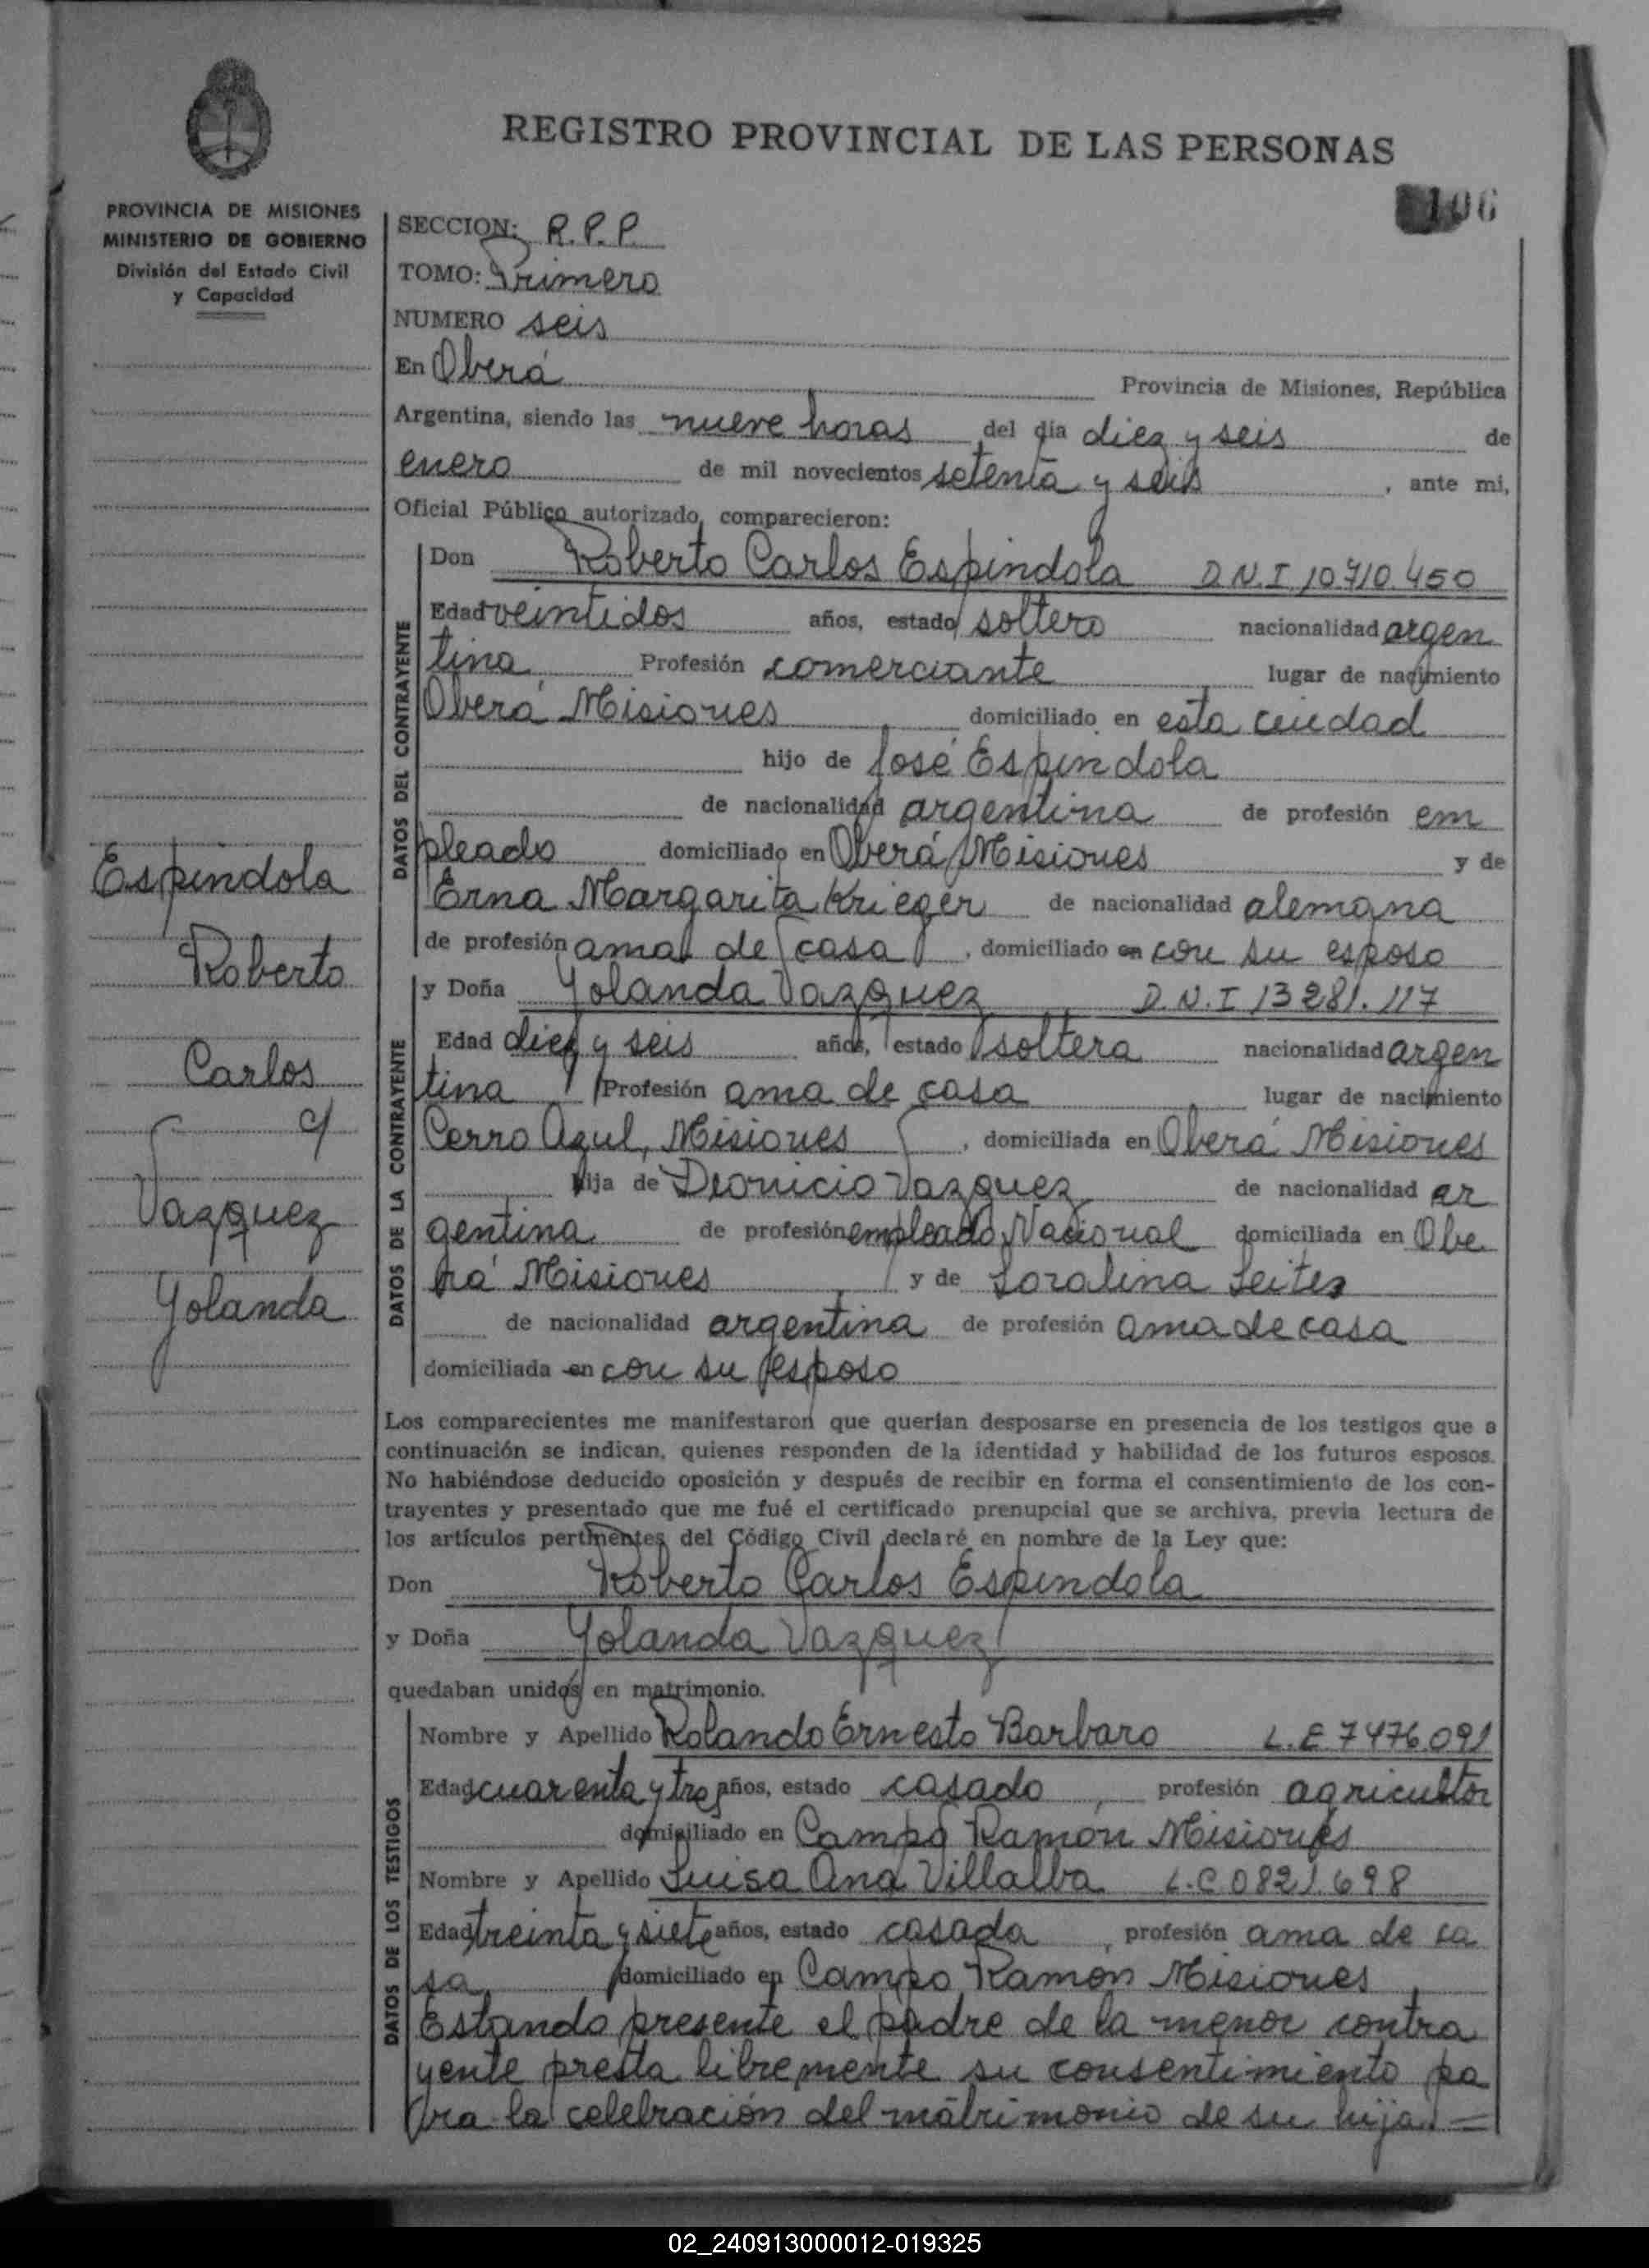 REGISTRO PROVINCIAL DE LAS PERSONAS
106
PROVINCIA DE MISIONES
MINISTERIO DE GOBIERNO
División del Estado Civil
y Capacidad
SECCION: R.P.P.
TOMO: Primero
NUMERO seis
En Oberá Provincia de Misiones, República
Argentina, siendo las nueve horas del día diez y seis de
enero de mil novecientos setenta y seis, ante mi,
Oficial Público autorizado, comparecieron:
DATOS DEL CONTRAYENTE
Don Roberto Carlos Espindola D.N.I 10.710.450
Edad veintidos años, estado soltero nacionalidad argen
tina Profesión comerciante lugar de nacimiento
Oberá Misiones domiciliado en esta ciudad
hijo de José Espindola
de nacionalidad argentina de profesión em
pleado domiciliado en Oberá Misiones y de
Erna Margarita Krieger de nacionalidad alemana
de profesión ama de casa, domiciliado en con su esposo
DATOS DE LA CONTRAYENTE
y Doña Yolanda Vazquez D.N.I 13281.117
Edad diez y seis años, estado soltera nacionalidad argen
tina Profesión ama de casa lugar de nacimiento
Cerro Azul, Misiones, domiciliada en Oberá Misiones
hija de Dionicio Vazquez de nacionalidad ar
gentina de profesión empleado Nacional domiciliada en Obe
rá Misiones y de Loralina Leites
de nacionalidad argentina de profesión ama de casa
domiciliada en con su esposo
Espindola
Roberto
Carlos
c/
Vazquez
Yolanda
Los comparecientes me manifestaron que querían desposarse en presencia de los testigos que a
continuación se indican, quienes responden de la identidad y habilidad de los futuros esposos.
No habiéndose deducido oposición y después de recibir en forma el consentimiento de los con-
trayentes y presentado que me fué el certificado prenupcial que se archiva, previa lectura de
los artículos pertinentes del Código Civil declaré en nombre de la Ley que:
Don Roberto Carlos Espindola
y Doña Yolanda Vazquez
quedaban unidos en matrimonio.
DATOS DE LOS TESTIGOS
Nombre y Apellido Rolando Ernesto Barbaro L.E 7476.091
Edad cuarenta y tres años, estado casado, profesión agricultor
domiciliado en Campo Ramón Misiones
Nombre y Apellido Luisa Ana Villalba L.C 0821.698
Edad treinta y siete años, estado casada, profesión ama de ca
sa domiciliado en Campo Ramon Misiones
Estando presente el padre de la menor contra
yente presta libremente su consentimiento pa
ra la celebración del matrimonio de su hija.=
02_240913000012-019325